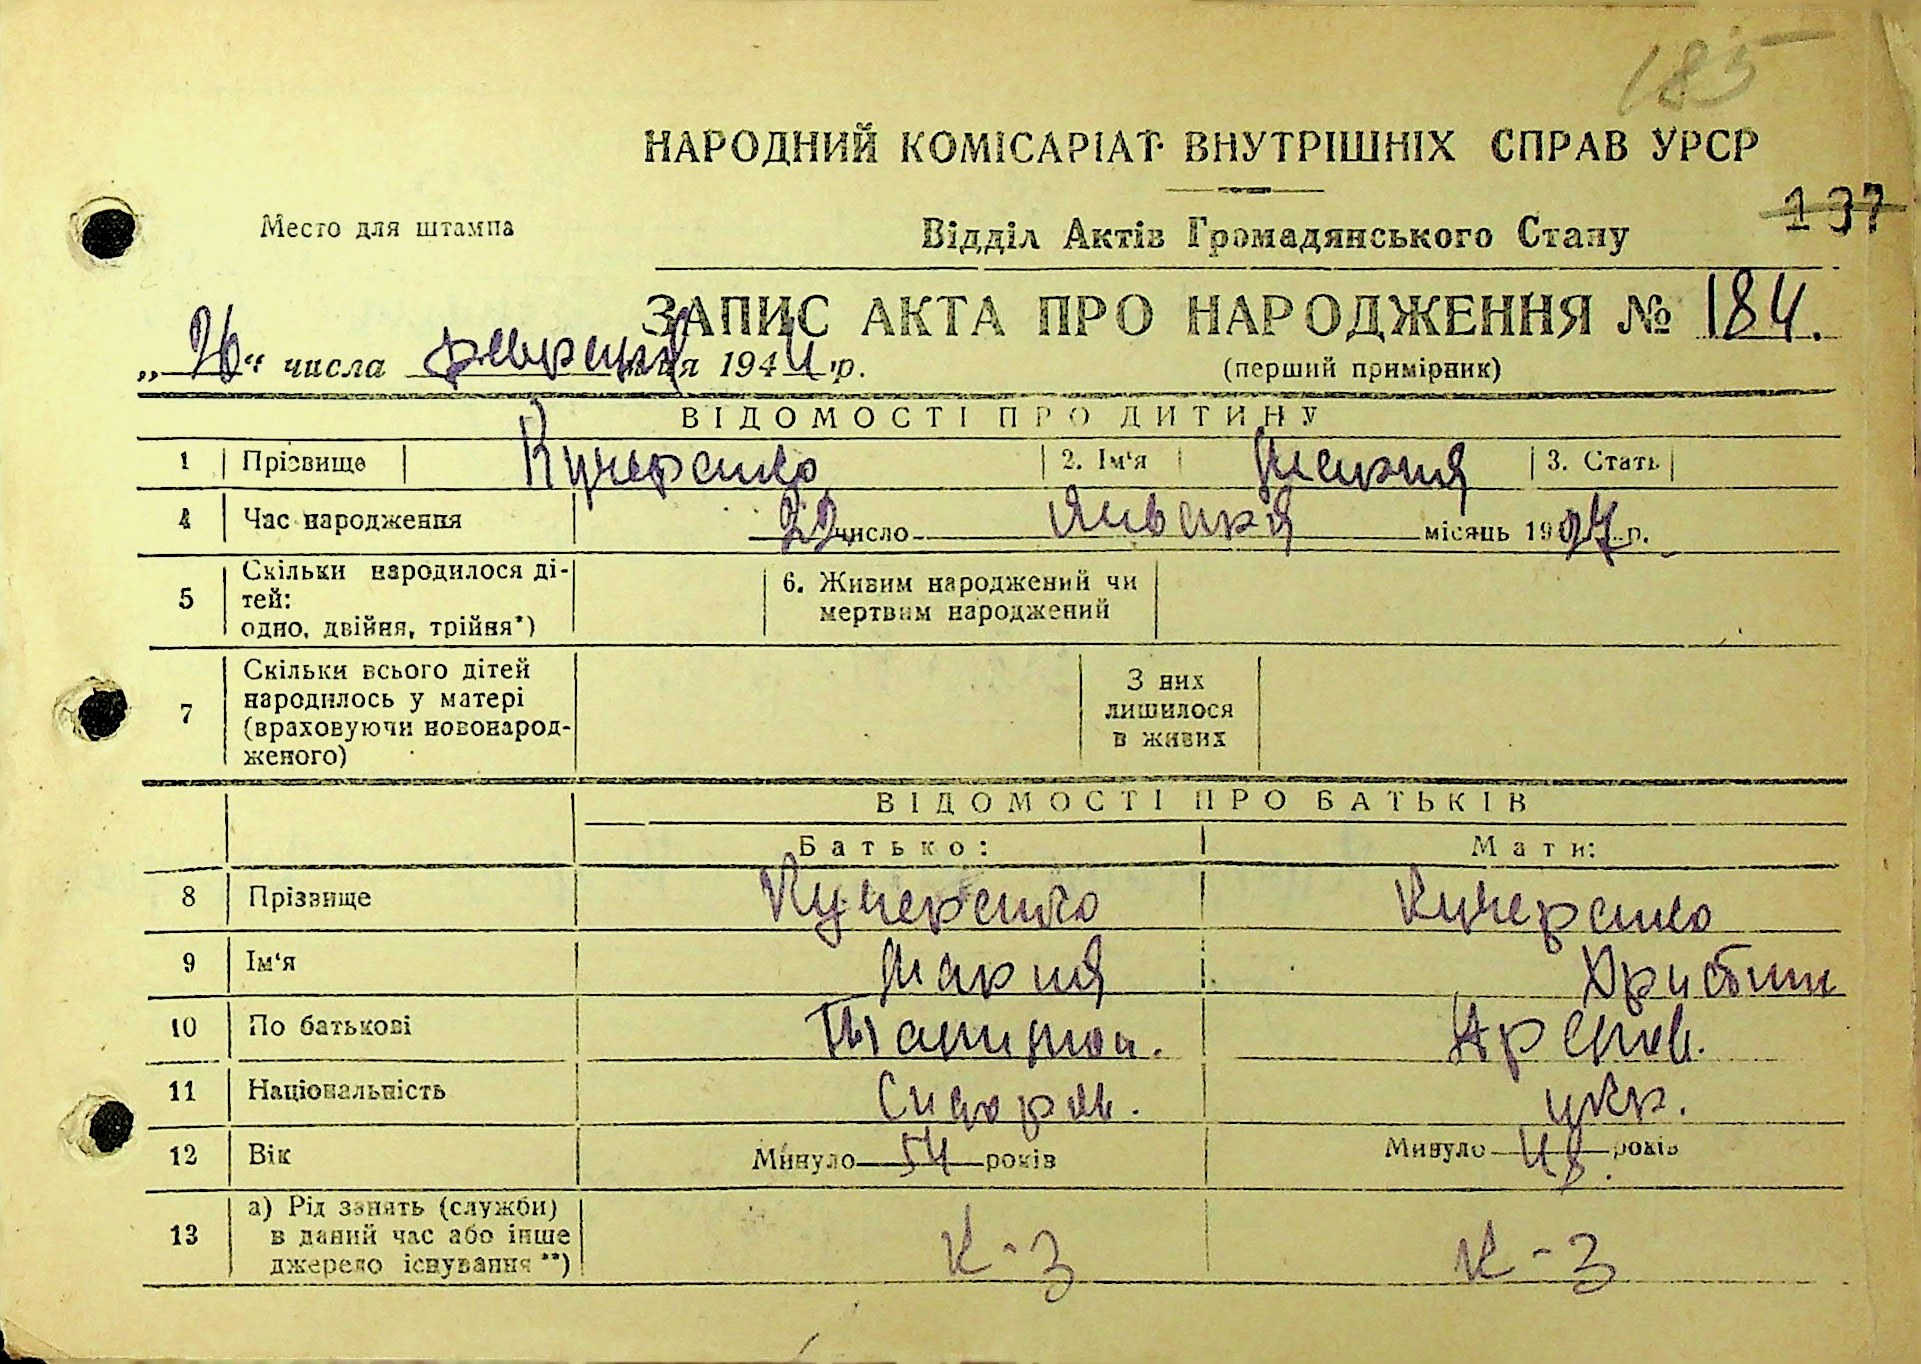 185
НАРОДНИЙ КОМІСАРІАТ ВНУТРІШНІХ СПРАВ УРСР
137
Место для штампа
Відділ Актів Громадянського Стану
ЗАПИС АКТА ПРО НАРОДЖЕННЯ № 184.
„26“ числа февраля 1944 р.
(перший примірник)
ВІДОМОСТІ ПРО ДИТИНУ
1 Прізвище Кучеренко 2. Ім‘я Мария 3. Стать
4 Час народження 22 число Января місяць 1927 р.
5 Скільки народилося ді-
тей:
одно, двійня, трійня*)
6. Живим народжений чи
мертвим народжений
7 Скільки всього дітей
народилось у матері
(враховуючи новонарод-
женого)
З них
лишилося
в живих
ВІДОМОСТІ ПРО БАТЬКІВ
Батько: Мати:
8 Прізвище Кучеренко Кучеренко
9 Ім‘я Мария Христин
10 По батькові Арсенов.
11 Національність Сидоров. укр.
12 Вік Минуло 54 років Минуло 48 років
13 а) Рід занять (служби) К-З К-З
в даний час або інше
джерело існування **)